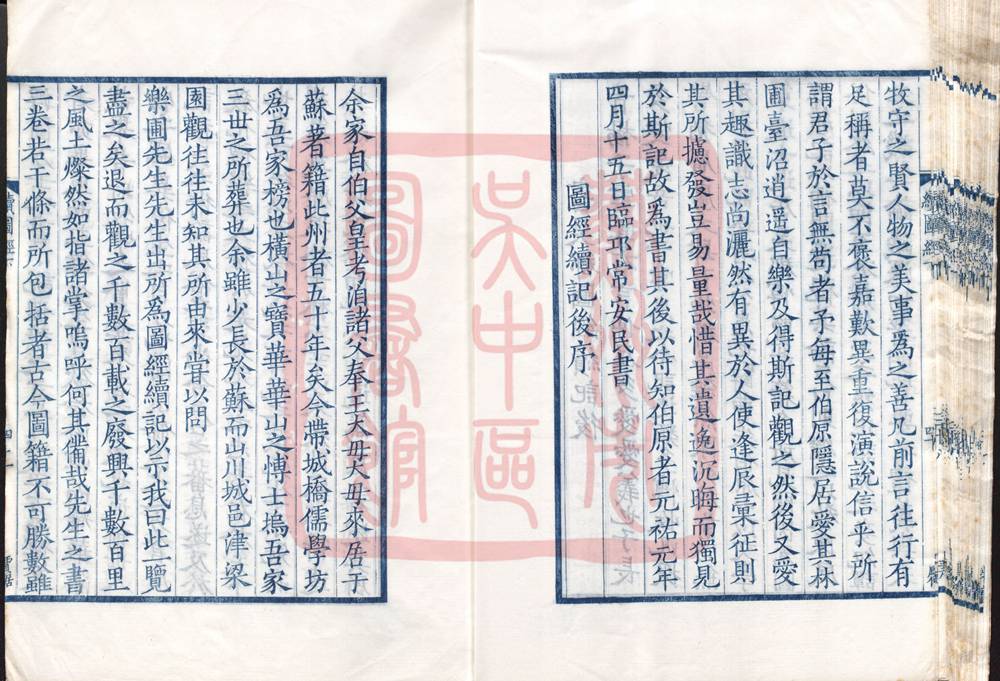 牧守之賢人物之美事爲之善凡前言往行有
足稱者莫不褒嘉歎異重復演說信乎所
謂君子於言無苟者予每至伯原隱居愛其林
圃臺沼逍遥自樂及得斯記觀之然後又愛
其趣識志尚灑然有異於人使逢辰彙征則
其所攄發豈易量哉惜其遺逸沉晦而獨見
於斯記故爲書其後以待知伯原者元祐元年
四月十五日臨邛常安民書
圖經續記後序
余家自伯父皇考洎諸父奉王大母大母來居于
蘇著籍此州者五十年矣今帶城橋儒學坊
爲吾家榜也橫山之寶華華山之博士塢吾家
三世之所葬也余雖少長於蘇而山川城邑津梁
園觀往往未知其所由來甞以問
樂圃先生先生出所爲圖經續記以示我曰此一覽
盡之矣退而觀之千數百載之廢興千數百里
之風土燦然如指諸掌嗚呼何其備哉先生之書
三卷若干條而所包括者古今圖籍不可勝數雖
吳中區
圖書館